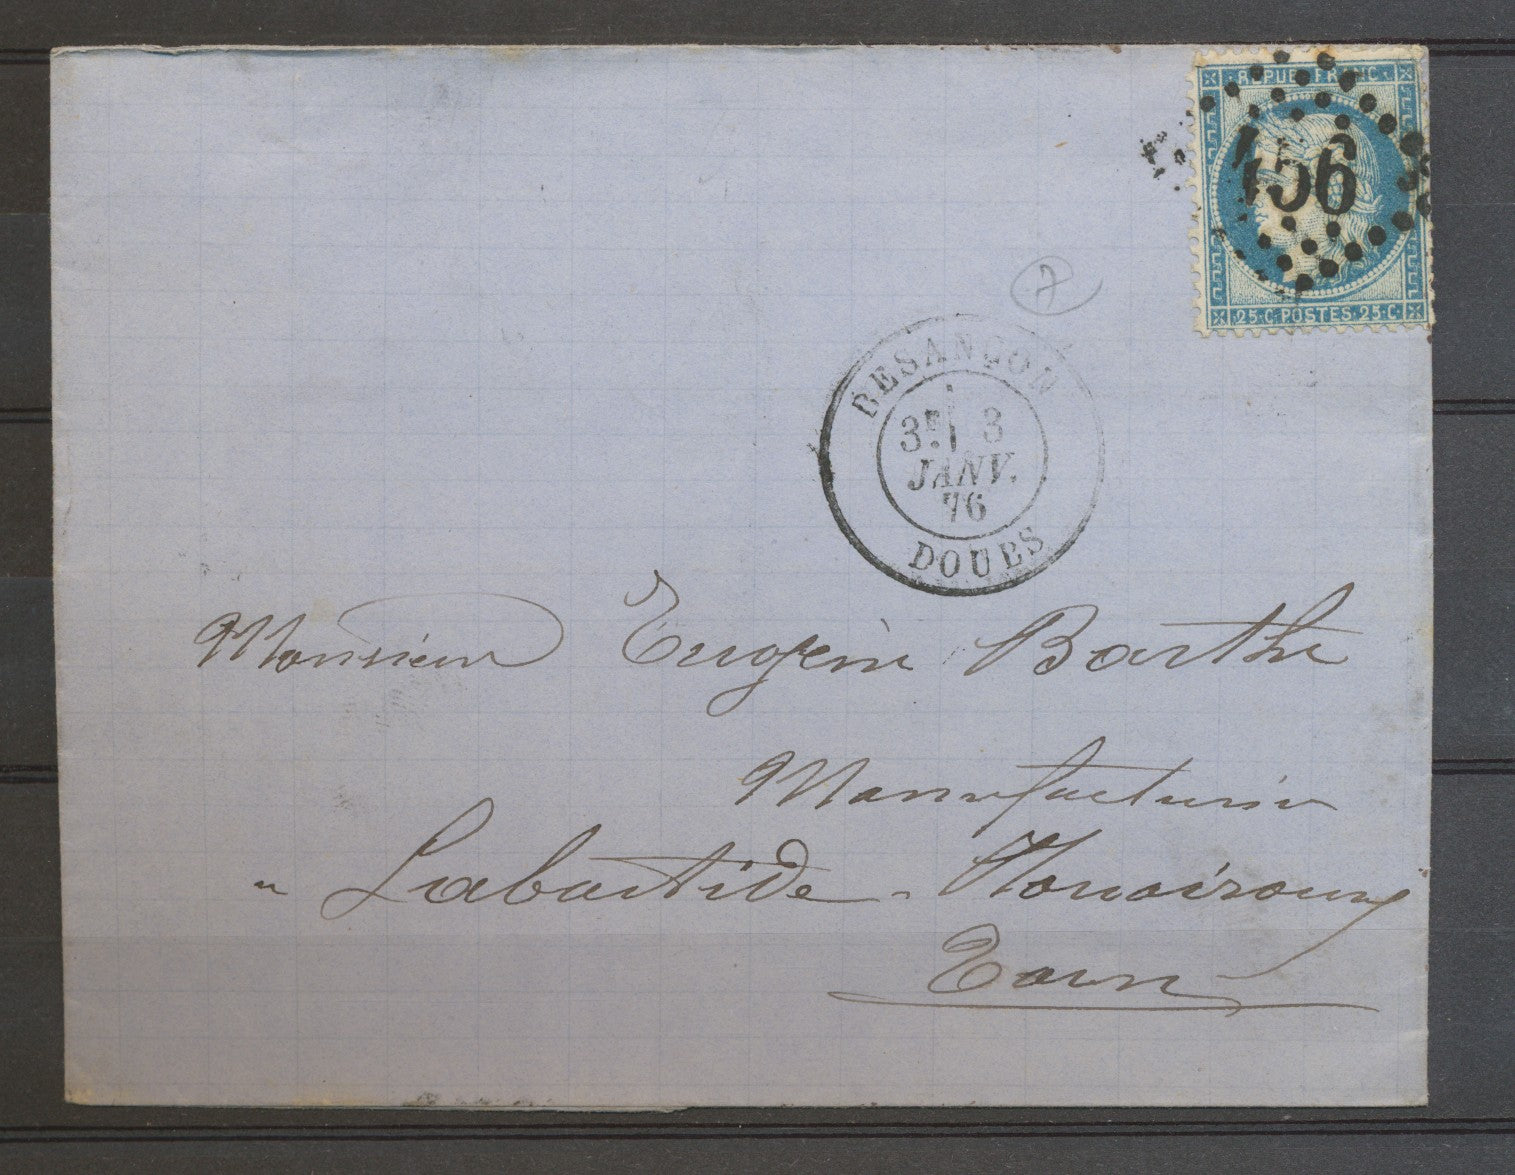 REPUB. FRANC.
456
25·C·POSTES·25·C·
BESANÇON
3E 3
JANV.
76
DOUBS
Monsieur Eugène Barthe
Manufacturier
" Labastide - Rouairoux
Tarn